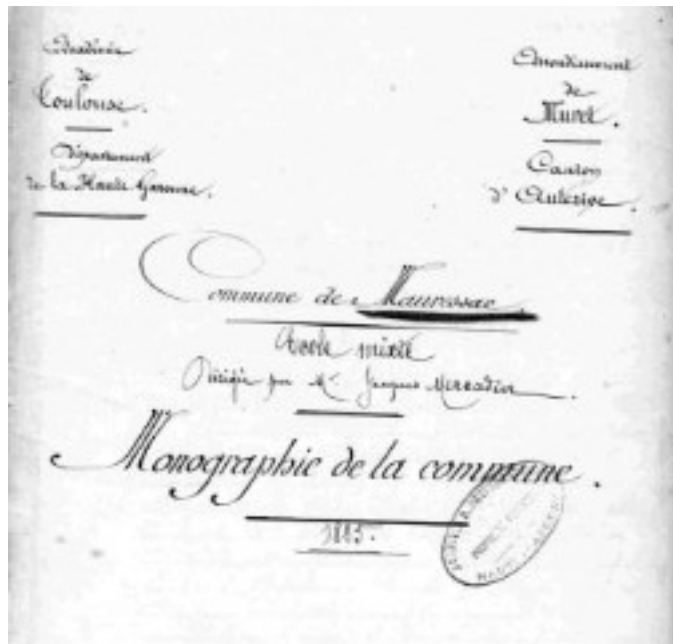 Académie
de
Toulouse.
Département
de la Haute Garonne.
Arrondissement
de
Muret.
Canton
d'Auterive.
Commune de Mauressac.
École mixte
Dirigée par Mr. Jacques Mercadier.
Monographie de la commune.